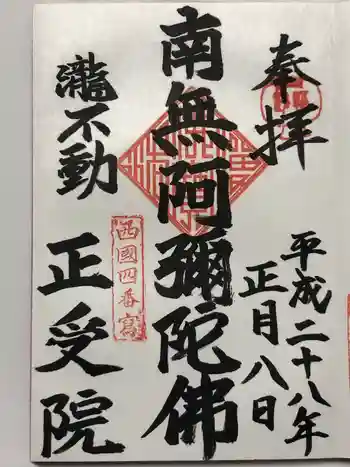 奉拝
平成二十八年
正月八日
南無阿彌陀佛
瀧不動
西國四番寫
正受院